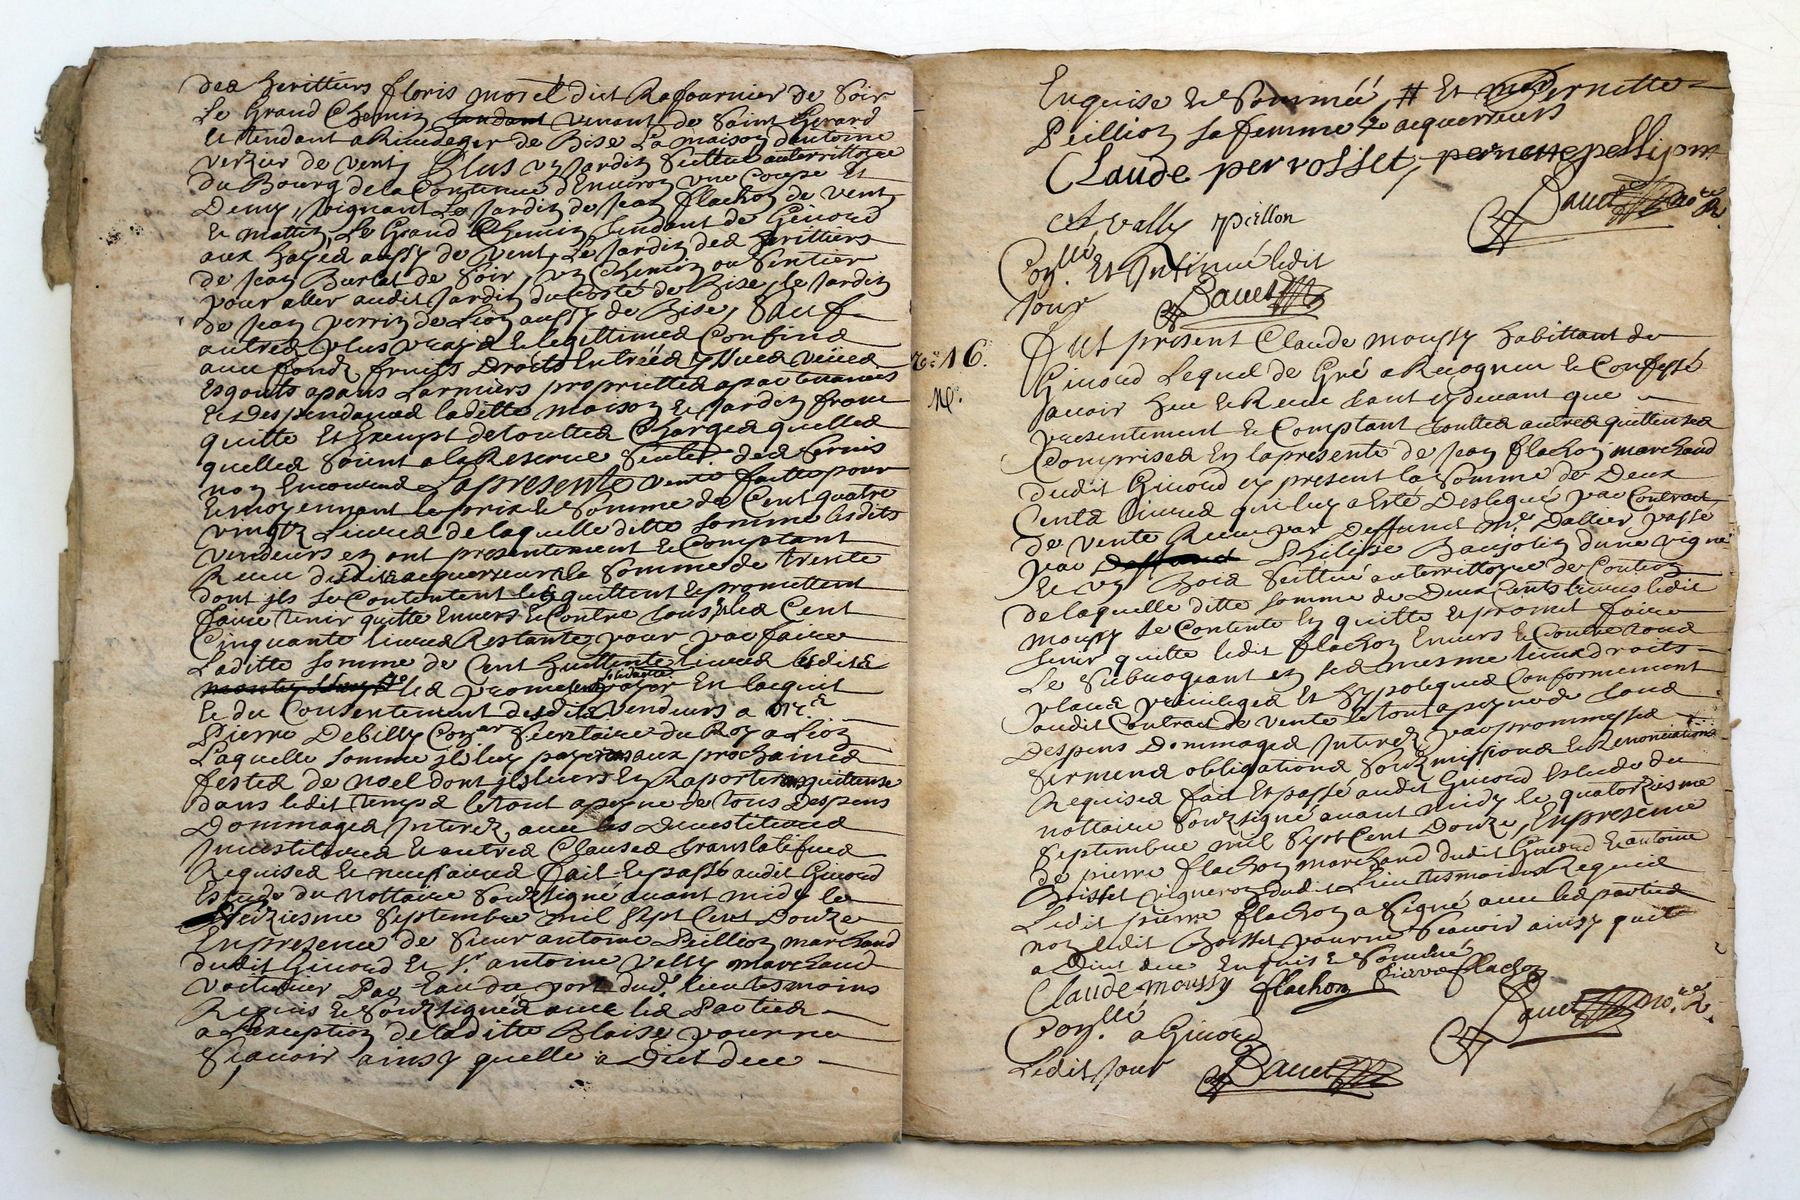 des heritiers floris morel dict Rafournier de soir
Le Grand Chemin tendant venant de Saint Gerard
et tendant a de Bise La maison dantoine
verzier de vent, Plus un Jardin scittué au territtoire
du Bourg de la Contenue denviron une Coupe et
Demy, Joignant Le Jardin de Jean flachon de vent
et mattin, Le Grand Chemin tendant de Givord
aux hayes aussy de vent, Le Jardin des heritiers
de Jean Burlat de soir, un Chemin ou sentier
pour aller audit Jardin du Costé de Bise, le Jardin
de Jean perrin de Lion aussy de Bise, Sauf
autres plus vrays et legittimes Confins
avec fondz fruits Droits Entrées yssues veües
Esgouts apans Larmiers proprietés apartenances
et despendances ladite maison et Jardin franc
quitte Et Exempt de touttes Charges quelles
quelles soient a la Reserve seule des servis
non Encourues, La presente vente faitte pour
et moyennant le prix et somme de Cent quatre
vingtz Livres de laquelle ditte somme lesdits
vendeurs en ont presentement et Comptant
Receu desdits acquerreurs la somme de trente
dont ils se Contentent les quittent et promettent
faire tenir quitte Envers et Contre tous, les Cent
Cinquante livres Restantes pour parfaire
Laditte somme de Cent huittante livres lesdits
les promettent solidaire payer En lacquit
et du Consentement desdits vendeurs a Mr.
Pierre Debilly Coner secretaire du Roy a Lion
Laquelle somme ils luy payeront aux prochaines
festes de noel dont ils leurs En Raporteront quittense
dans ledit temps le tout a peyne de tous despens
Dommages Interez, avec les Devestitures
Investitures et autres Clauses translatifves
Requises et necessaires fait et passé audit Givord
Estude du nottaire soubsigné avant midy le
seiziesme septembre mil sept Cent Douze
En presence de sieur antoine Peillion marchand
dudit Givord et Sr antoine Vally marchand
voiturier Par Eau du port dud. lieu tesmoins
Requis et soubsignés avec les Parties
a Lexception de laditte Blaise pour ne
scavoir ainsy quelle a Dict deue
Enquise et sommée # Et Pernette
Peillion sa femme acquerreurs
Claude pervosset, pernette pellion
A vally peillon
Bauet nore R.
Con.llé Et Insinué ledit
Jour Bauet
16.
Fut present Claude moussy habittant de
Givord Lequel de Gré a Recognu et Confessé
avoir heu et Receu tant cy devant que
presentement et Comptant touttes autres quittenses
Comprises En la presente de Jean flachon marchand
dudit Givord cy present la somme de Deux
Cents Livres qui luy a Esté Deslegué par Contract
de vente Receu par Deffunct Me Dallier passé
par Philippe Baujolin dune vigne
et un bois scittué au territtoire de
de laquelle ditte somme de Deux Cents livres ledit
moussy se Contente En quitte et promet faire
tenir quitte ledit flachon Envers et Contre tous
Le subrogeant en ses mesme lieux droits
place privileges Et hypoteques Conformement
audit Contract de vente le tout a peyne de tous
despens Dommages Interez, par promesses
serments obligations soubmissions et Renonciations
Requises fait et passé audit Givord Estude du
nottaire soubsigné avant midy le quatorziesme
septembre mil sept Cent Douze, En presence
de pierre flachon marchand dudit Givord et antoine
Boisset vigneron dudit Lieu tesmoins Requis
Ledit pierre flachon a signé avec les parties
non ledit Boisset pour ne scavoir ainsy quil
a Dict deue Enquis et sommé
Claude moussy flachon Pierre flachon
Bauet nore R.
Con.llé a Givord
Ledit Jour Bauet